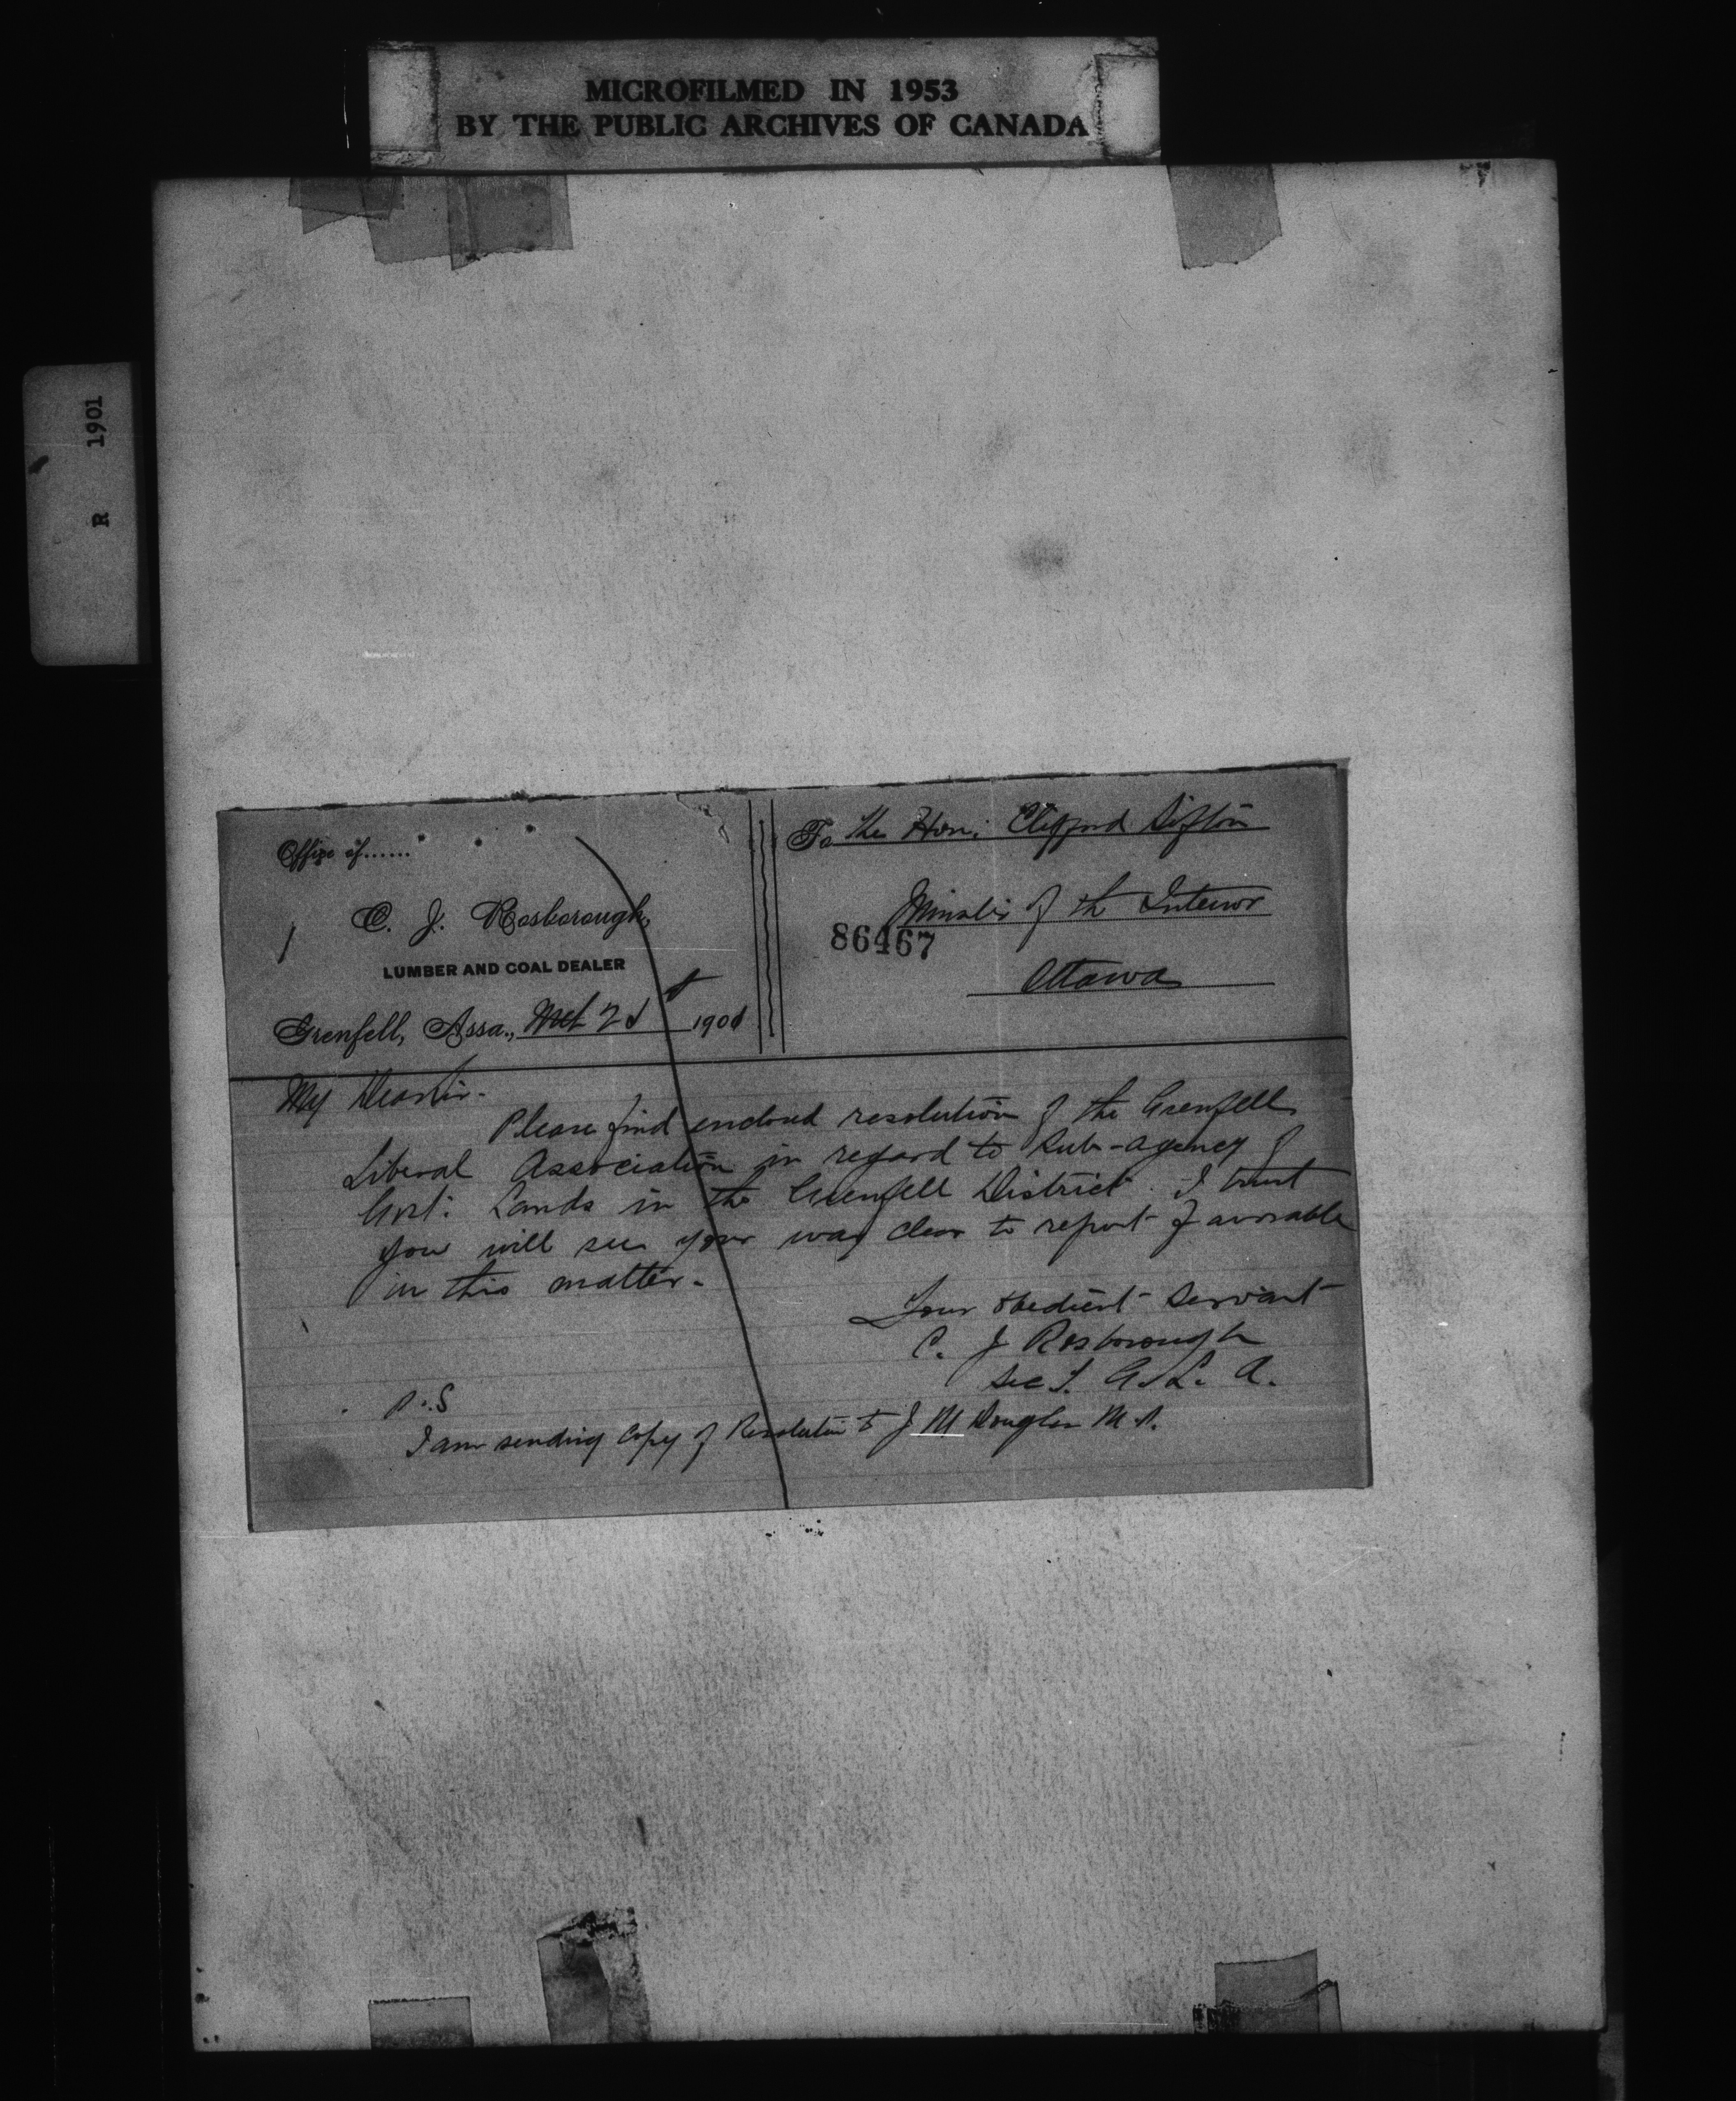 MICROFILMED IN 1953
BY THE PUBLIC ARCHIVES OF CANADA
R 1901
Office of......
C. J. Rosborough,
LUMBER AND COAL DEALER
Grenfell, Assa., 1901
To the Hon: Clifford Sifton
Minister of the Interior
86467
Ottawa
My Dear Sir-
Please find enclosed resolution of the Grenfell
Liberal Association in regard to Sub-agency of
Govt: Lands in the Grenfell District. I trust
you will see your way clear to report favorable
in this matter.
Your obedient Servant
C. J Rosborough
Sec G. L. A.
P.S
I am sending Copy of Resolution to J M Douglas M.P.